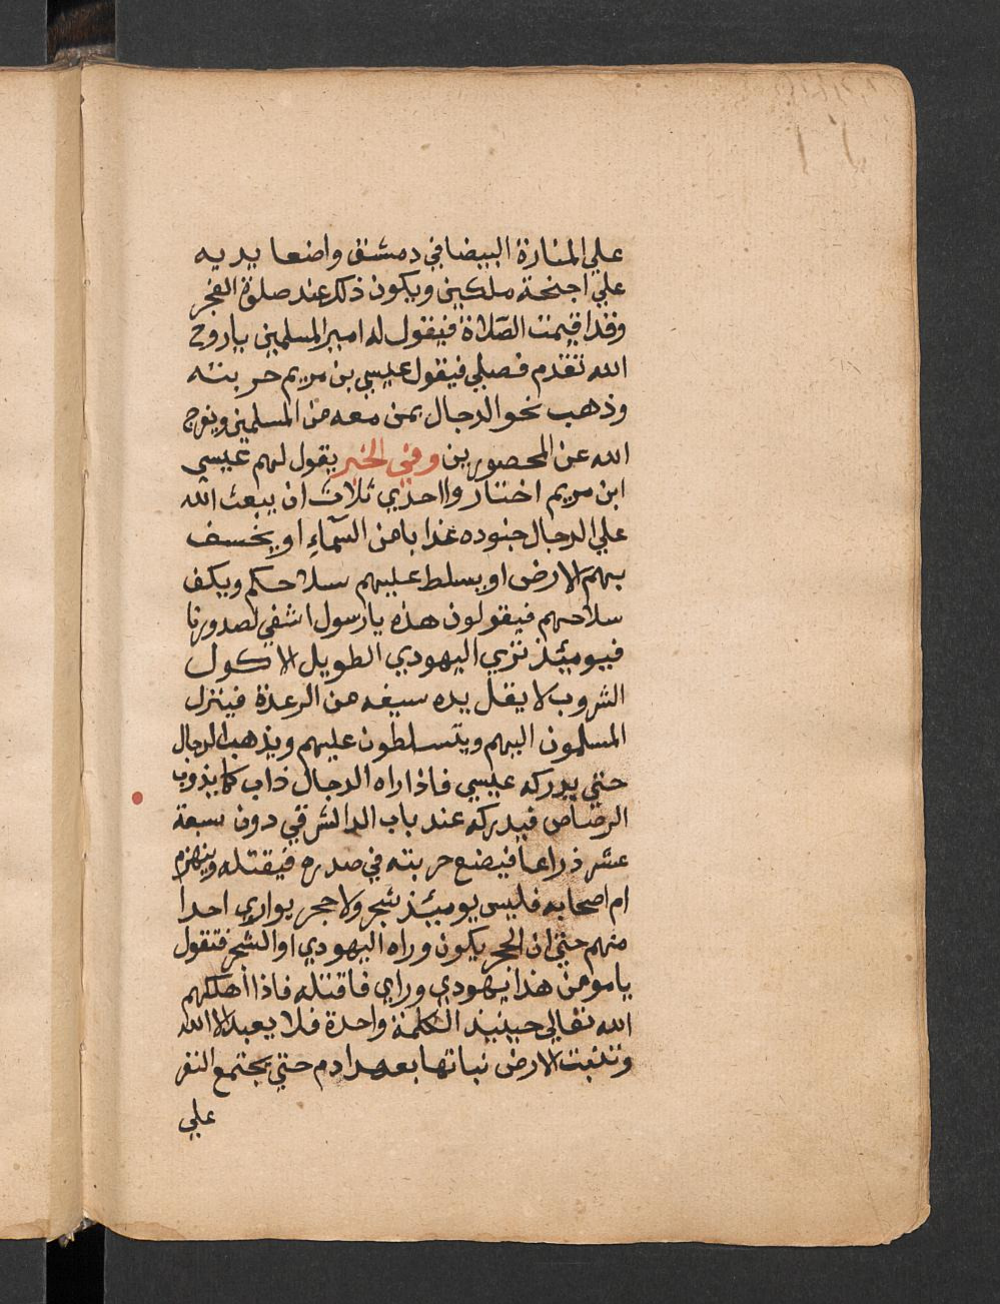 علي المنارة البيضا في دمشق واضعا يديه
علي اجنحة ملكين ويكون ذلك عند صلوة الفجر
وقد اقيمت الصلاة فيقول له امير المسلمين ياروح
الله تقدم فصلي فيقول عيسي بن مريم حربته
وذهب نحو الدجال بمن معه من المسلمين ويفرج
الله عن المحصورين وفي الخبر يقول لهم عيسي
ابن مريم اختاروا احدي ثلاث ان يبعث الله
علي الدجال جنوده عذابا من السماء او يخسف
بهم الارض او يسلط عليهم سلاحكم ويكف
سلاحهم فيقولون هذه يا رسول اشفي لصدورنا
فيومئذ تري اليهودي الطويل الاكول
الشروب لا يقل يده سيفه من الرعدة فينزل
المسلمون اليهم ويتسلطون عليهم ويذهب الدجال
حتي يدركه عيسي فاذا راه الدجال ذاب كما يذوب
الرصاص فيدركه عند باب الد الشرقي دون سبعة
عشر ذراعا فيضع حربته في صدره فيقتله وينهزم
ام اصحابه فليس يومئذ شجر ولا حجر يواري احدا
منهم حتي ان الحجر يكون وراه اليهودي او الشجر فتقول
يا مومن هذا يهودي وراي فاقتله فاذا أهلكهم
الله تعالي حينيذ الكلمة واحدة فلا يعبد الا الله
وتنبت الارض نباتها بعهد ادم حتي يجتمع النفر
علي